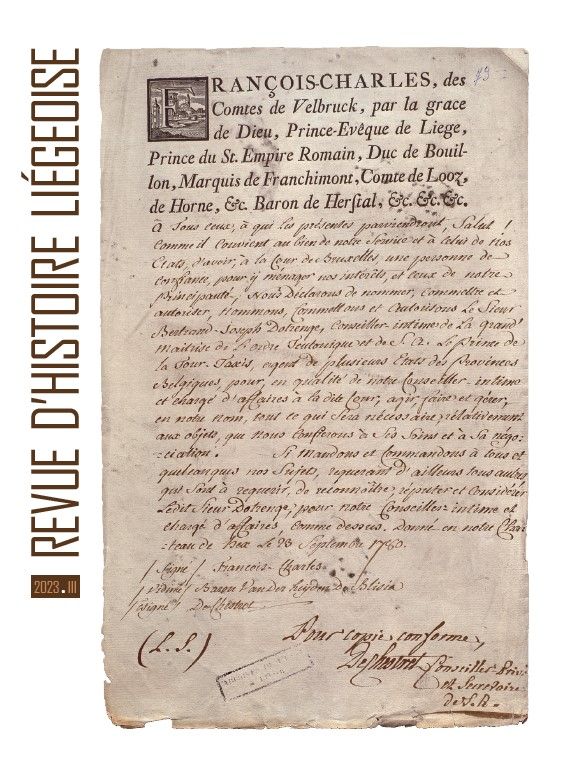 REVUE D'HISTOIRE LIÉGEOISE
2023.III
79
FRANÇOIS-CHARLES, des
Comtes de Velbruck, par la grace
de Dieu, Prince-Evêque de Liege,
Prince du St. Empire Romain, Duc de Bouil-
lon, Marquis de Franchimont, Comte de Looz,
de Horne, &c. Baron de Herstal, &c. &c. &c.
A Tous ceux, à qui les présentes parviendront, Salut !
Comme il Convient au bien de notre Service et à celui de nos
Etats, d'avoir, à la Cour de Bruxelles, une personne de
confiance, pour y ménager nos intérêts, et ceux de notre
Principauté, Nous Déclarons de nommer, Commettre et
autoriser, Nommons, Commettons et autorisons Le Sieur
Bertrand-Joseph Dotrenge, Conseiller intime de La grand'
Maitrise de L'ordre Teutonique et de S. A. Le Prince de
la Tour-Taxis, agent de plusieurs Etats des Provinces
Belgiques, pour, en qualité de notre Conseiller-intime
et chargé d'affaires à la dite Cour, agir, faire et gérer,
en notre nom, tout ce qui Sera nécessaire, relativement
aux objets, que nous Confierons à Ses Soins et à Sa négo-
-ciation. Si Mandons et Commandons à tous et
quelconques nos Sujets, requerant d'ailleurs tous autres
qui Sont à requérir, de reconnaître, réputer et Considérer
Ledit Sieur Dotrenge, pour notre Conseiller-intime et
chargé d'affaires, Comme dessus. Donné en notre Cha-
teau de Hex Le 23 Septembre 1780.
/Signé/ François-Charles
/Vidimé/ Baron Van der heyden De Blisia
/Signé/ De Chestret
(L.S.)
Pour copie conforme,
De Chestret Conseiller-Privé
et Secretaire
de S. A.